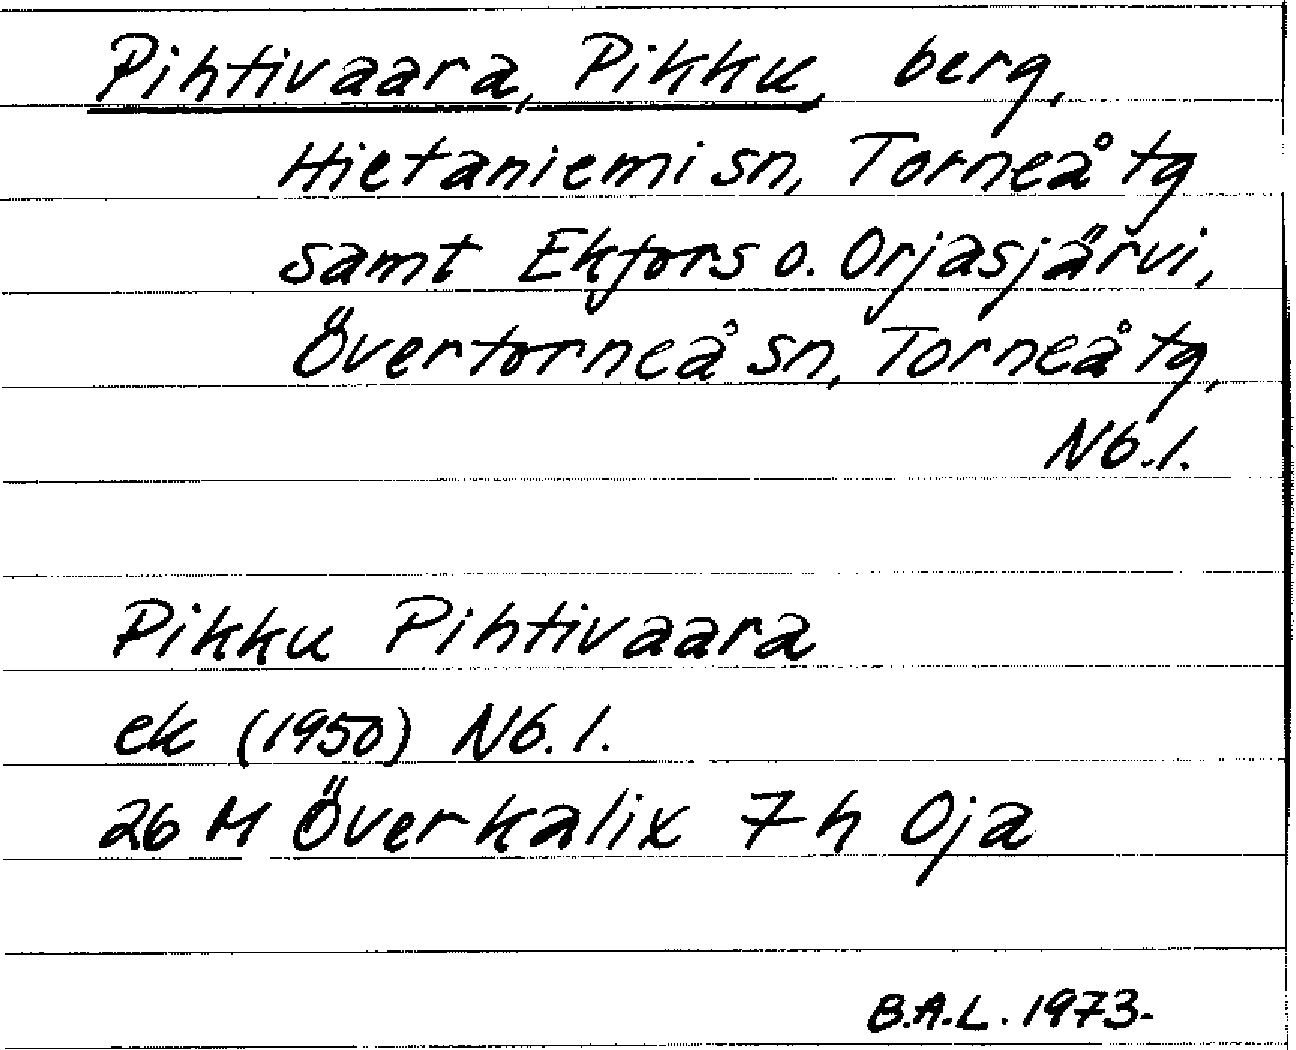 Pihtivaara, Pikku, berg,
Hietaniemi sn, Torneå tg
samt Ekfors o. Orjasjärvi,
Övertorneå sn, Torneå tg,
Nb.l.
Pikku Pihtivaara
ek (1950) Nb.l.
26 M Överkalix 7h Oja
B.A.L. 1973.